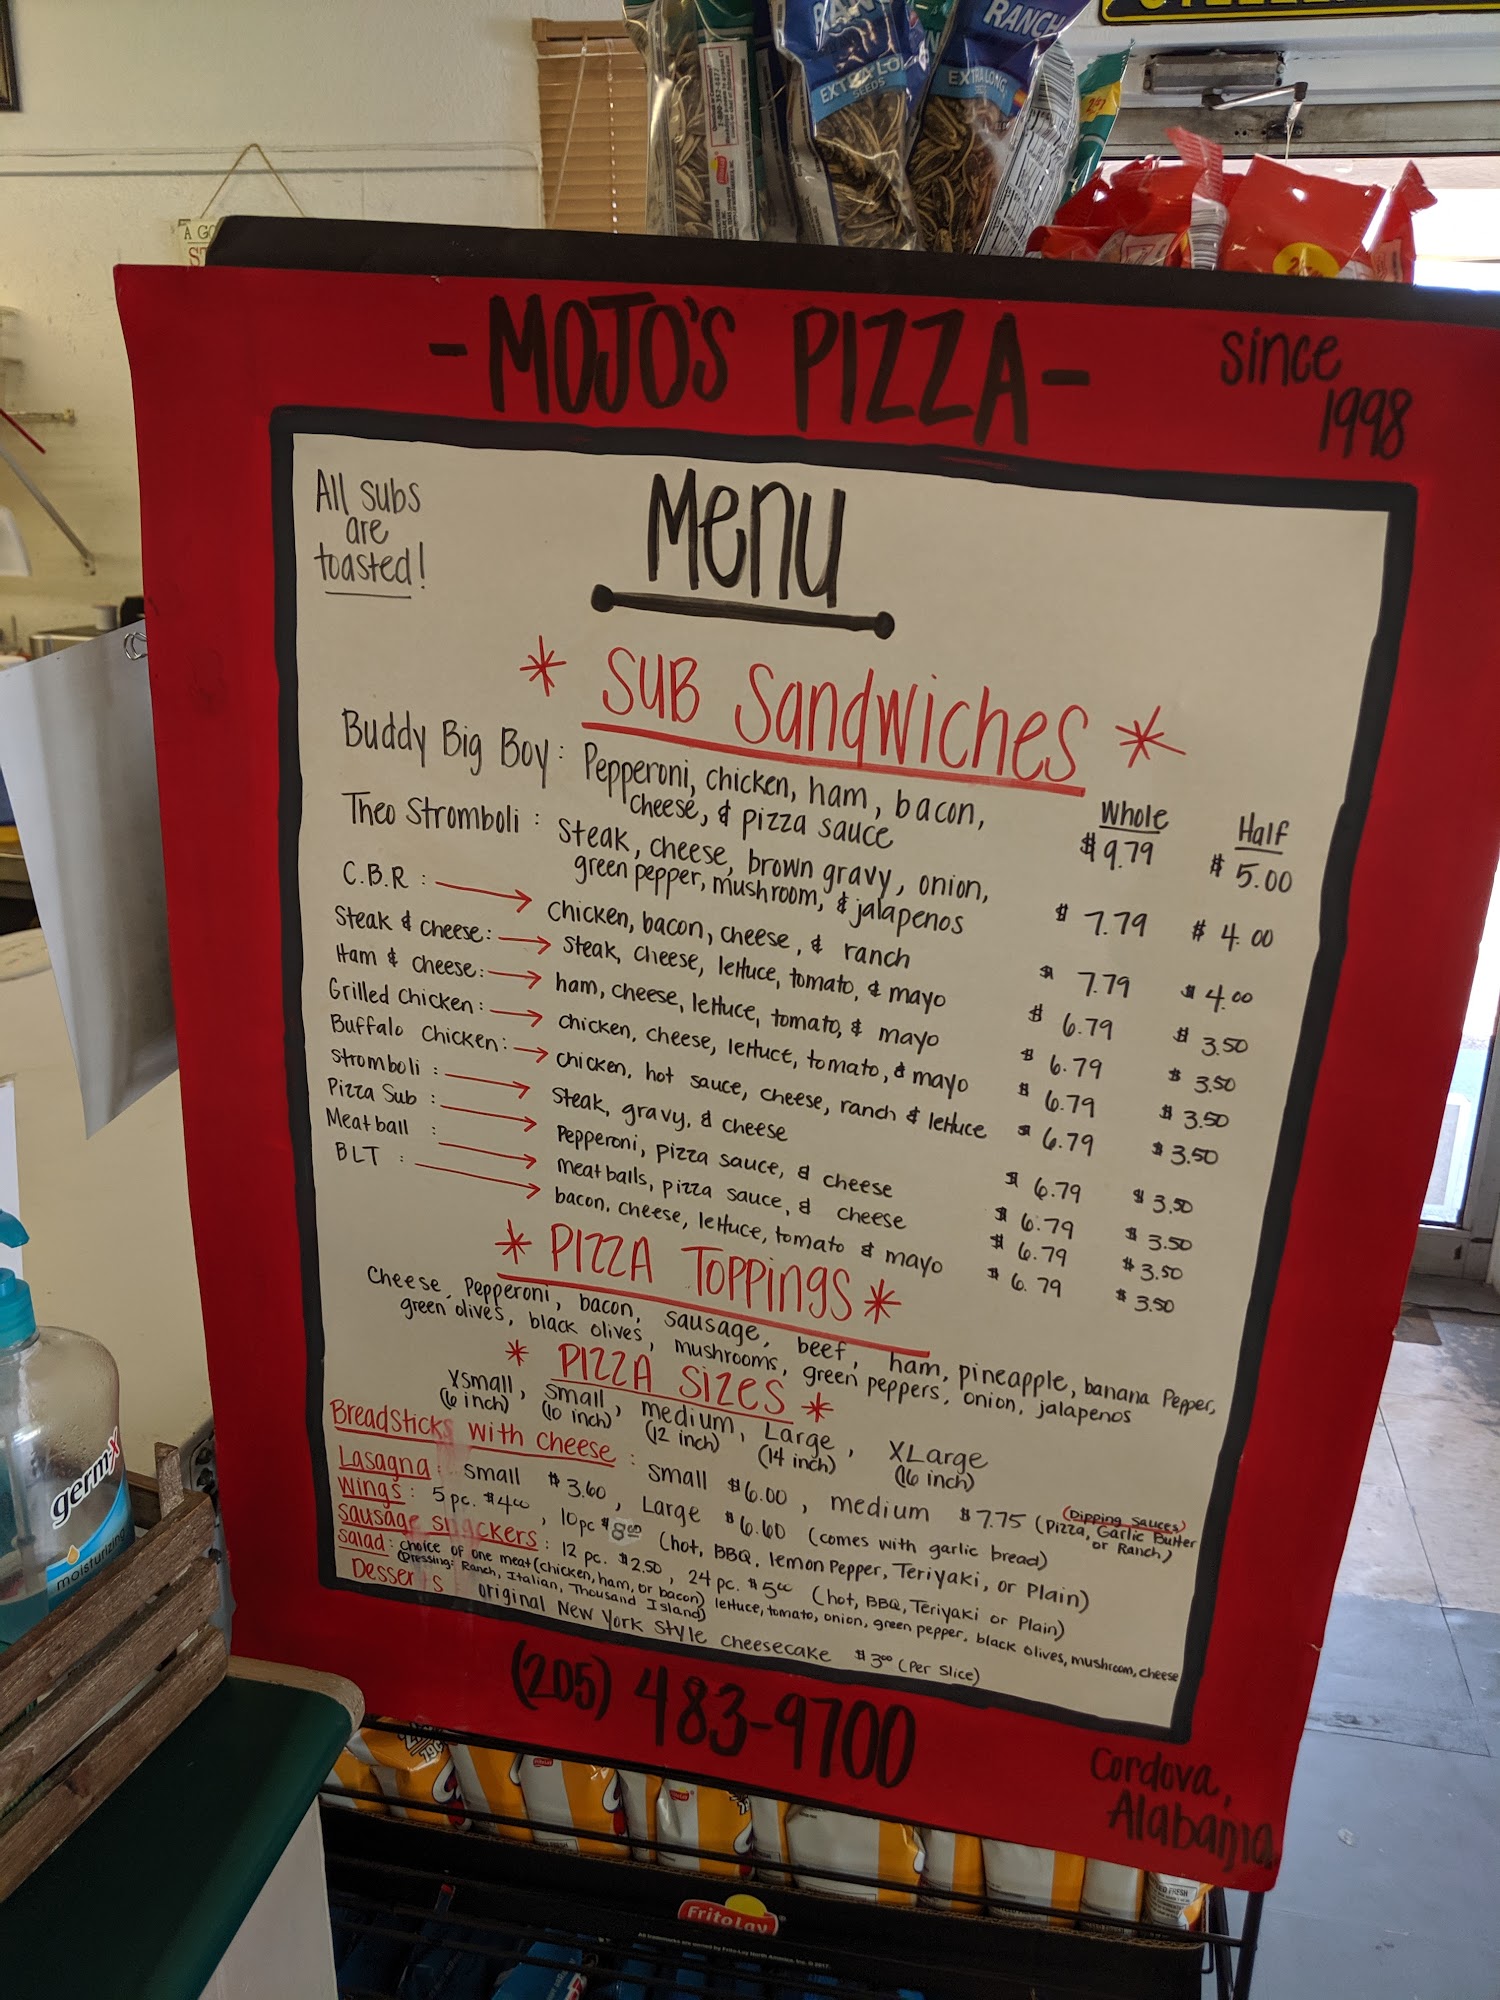 RANCH
RANCH
EXTRA LONG
SEEDS
EXTRA LONG
SEEDS
A GO
- MOJO'S PIZZA -
since
1998
All subs
are
toasted!
Menu
* SUB Sandwiches *
Whole Half
Buddy Big Boy: Pepperoni, chicken, ham, bacon,
cheese, & pizza sauce $9.79 $5.00
Theo Stromboli: Steak, cheese, brown gravy, onion,
green pepper, mushroom, & jalapenos $7.79 $4.00
C.B.R: → Chicken, bacon, cheese, & ranch $7.79 $4.00
Steak & cheese: → Steak, cheese, lettuce, tomato, & mayo $6.79 $3.50
Ham & cheese: → ham, cheese, lettuce, tomato, & mayo $6.79 $3.50
Grilled Chicken: → chicken, cheese, lettuce, tomato, & mayo $6.79 $3.50
Buffalo Chicken: → chicken, hot sauce, cheese, ranch & lettuce $6.79 $3.50
Stromboli: → Steak, gravy, & cheese $6.79 $3.50
Pizza Sub: → Pepperoni, pizza sauce, & cheese $6.79 $3.50
Meatball: → meatballs, pizza sauce, & cheese $6.79 $3.50
BLT: → bacon, cheese, lettuce, tomato & mayo $6.79 $3.50
* PIZZA TOPPINGS *
Cheese, Pepperoni, bacon, sausage, beef, ham, pineapple, banana Pepper,
green olives, black olives, mushrooms, green peppers, onion, jalapenos
* PIZZA SIZES *
XSmall, small, medium, Large, XLarge
(6 inch) (10 inch) (12 inch) (14 inch) (16 inch)
Breadsticks with cheese: small $6.00, medium $7.75 (Dipping Sauces)
(Pizza, Garlic Butter
or Ranch)
Lasagna: small $3.60, Large $6.60 (comes with garlic bread)
Wings: 5 pc. $4.00, 10pc $8.00 (hot, BBQ, lemon Pepper, Teriyaki, or Plain)
Sausage snackers: 12 pc. $2.50, 24 pc. $5.00 (hot, BBQ, Teriyaki or Plain)
Salad: choice of one meat (chicken, ham, or bacon) lettuce, tomato, onion, green pepper, black olives, mushroom, cheese
(Dressing: Ranch, Italian, Thousand Island)
Desserts original New York style cheesecake $3.00 (Per Slice)
(205) 483-9700
Cordova,
Alabama
germ-x
moisturizing
FritoLay